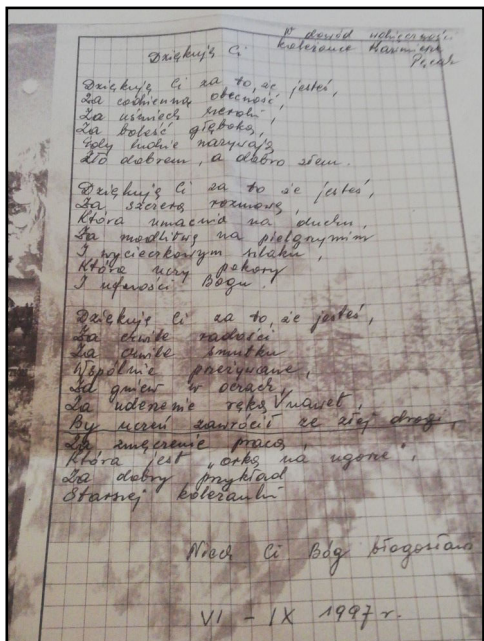 W dowód wdzięczności
koleżance Kazimierze
Dziękuję Ci
Dziękuję Ci za to, że jesteś,
Za codzienną obecność,
Za uśmiech szeroki,
Za boleść głęboką,
Gdy ludzie nazywają
Zło dobrem, a dobro złem.
Dziękuję Ci za to że jesteś,
Za szczerą rozmowę,
Która umacnia na duchu,
Za modlitwę na pielgrzymim
I wycieczkowym szlaku,
Która uczy pokory
I ufności Bogu.
Dziękuję Ci za to, że jesteś,
Za chwile radości
Za chwile smutku
Wspólnie przeżywane,
Za gniew w oczach,
Za uderzenie ręką nawet,
By uczeń zawrócił ze złej drogi,
Za zmęczenie pracą,
Która jest „orką na ugorze",
Za dobry przykład
Starszej koleżanki
Niech Ci Bóg błogosławi
VI - IX 1997 r.